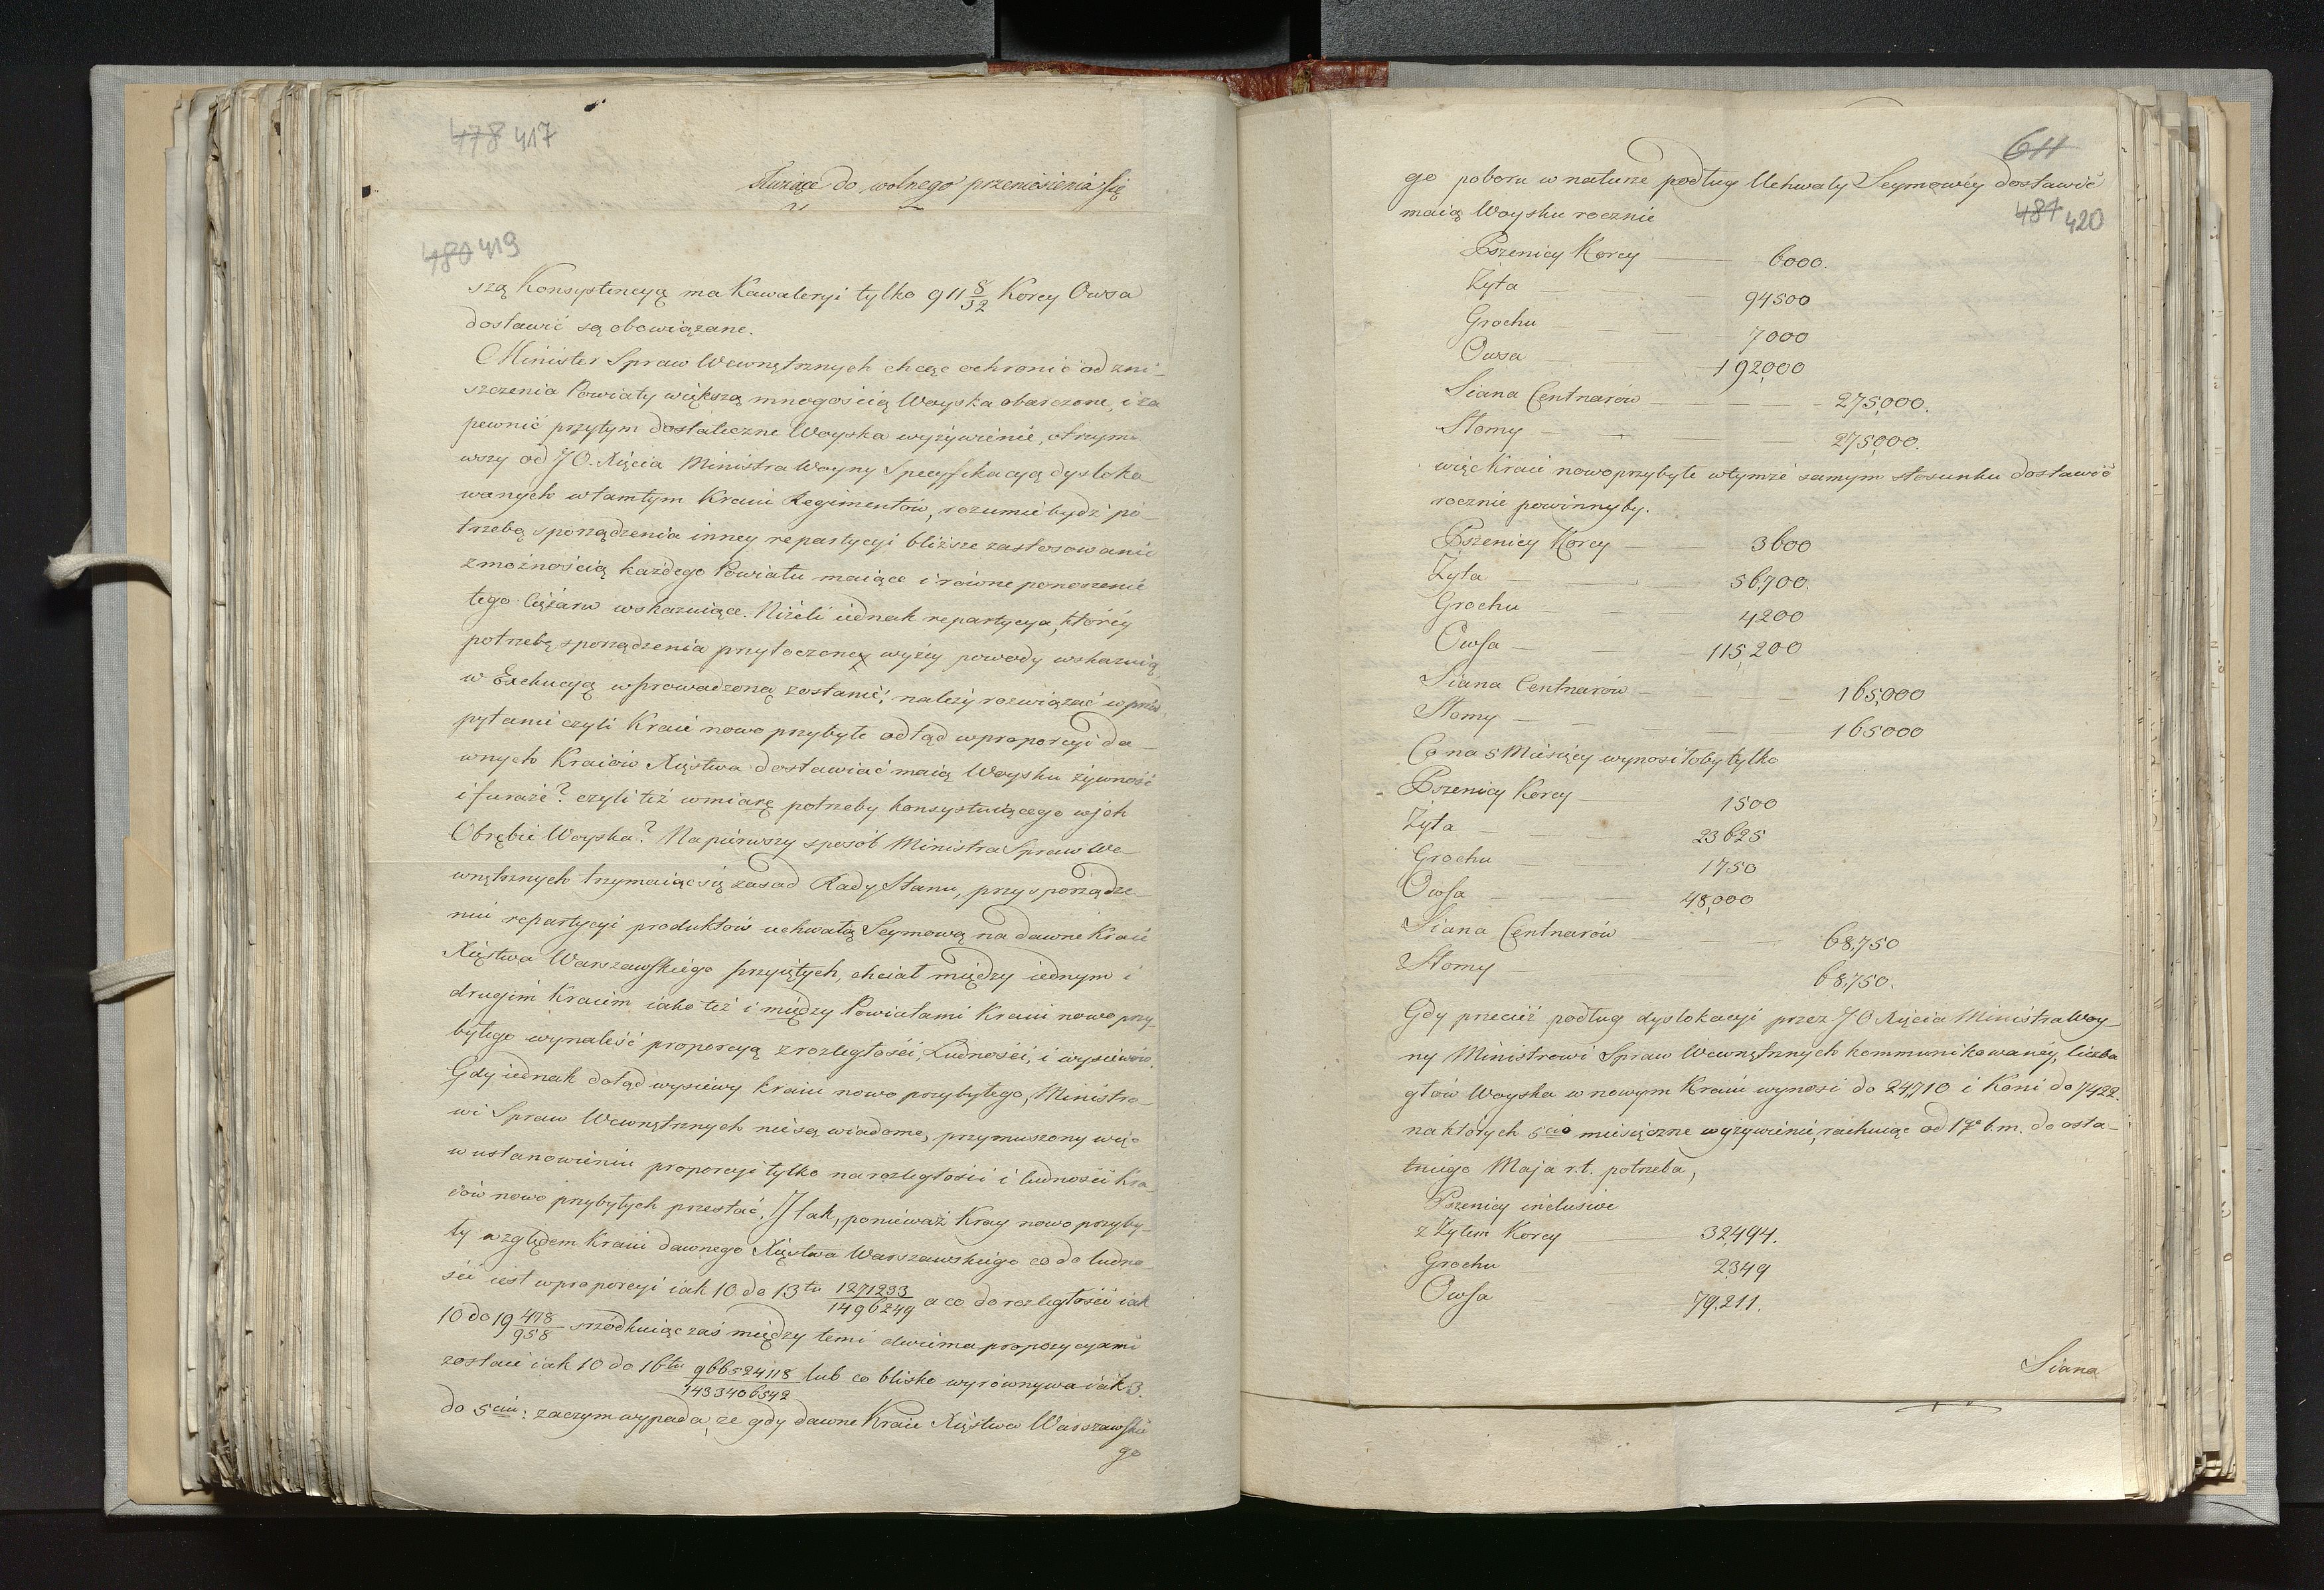 478 417
służące do wolnego przeniesienia się
480 419
szą Konsystencyą ma Kawaleryi tylko 911 8/32 Korcy Owsa
dostawić są obowiązane.
Minister Spraw Wewnętrznych chcąc ochronić od zni-
szczenia Powiaty większą mnogością Woyska obarczone, i za
pewnić przytym dostateczne Woyska wyżywienie, otrzyma
wszy od JO. Xięcia Ministra Woyny Specyfikacyą dysloko
wanych w tamtym Kraiu Regimentów, rozumie bydź po-
trzebą sporządzenia inney repartycyi bliższe zastosowanie
z możnością każdego Powiatu maiące i równe ponoszenie
tego Ciężaru wskazuiące. Niżeli iednak repartycya, któréy
potrzebę sporządzenia przytoczone wyżey powody wskazuią,
w Exekucyą wprowadzoną zostanie; należy rozwiązać wprzód
pytanie czyli Kraie nowo przybyłe odtąd w proporcyi da-
wnych Kraiów Xięstwa dostawiać maią Woysku żywność
i furaże? czyli też w miarę potrzeby konsystuiącego w ich
Obrębie Woyska? Na pierwszy sposób Minister Spraw We-
wnętrznych trzymaiąc się zasad Rady Stanu, przy sporządze-
niu repartycyi produktów uchwałą Seymową na dawne Kraie
Xięstwa Warszawskiego przyiętych, chciał między iednym i
drugim Kraiem iako też i między Powiatami Kraiu nowo przy-
byłego wynaleść proporcyą z rozległości, Ludności, i wysiewów.
Gdy iednak dotąd wysiewy kraiu nowo przybyłego, Ministro-
wi Spraw Wewnętrznych nie są wiadome, przymuszony więc
w ustanowieniu proporcyi tylko na rozległości i ludności kra-
iów nowo przybyłych przestać. I tak, ponieważ Kray nowo przyby-
ły względem Kraiu dawnego Xięstwa Warszawskiego co do ludno-
ści iest w proporcyi iak 10 do 13tu 1271233/1496249 a co do rozległości iak
10 do 19 478/958 srzódkuiąc zaś między temi dwiema propozycyami
zostaie iak 10 do 16tu 966524118/1433406542 lub co blisko wyrównywa iak 3.
do 5ciu: zaczym wypada, że gdy dawne Kraie Xięstwa Warszawskie
go
611
go poboru w naturze podług Uchwały Seymowéy dostawić
487 420
maią Woysku rocznie
Pszenicy Korcy 6000.
Żyta 94500
Grochu 7000
Owsa 192,000
Siana Centnarów 275,000.
Słomy 275,000.
więc Kraie nowo przybyłe w tymże samym stosunku dostawić
rocznie powinnyby.
Pszenicy Korcy 3600
Żyta 56,700.
Grochu 4200
Owsa 115,200
Siana Centnarów 165,000
Słomy 165000
Co na 5 Miesięcy wynosiłoby tylko
Pszenicy Korcy 1500
Żyta 23625
Grochu 1750
Owsa 48,000
Siana Centnarów 68,750
Słomy 68,750.
Gdy przecież podług dyslokacyi przez JO Xięcia Ministra Woy-
ny Ministrowi Spraw Wewnętrznych kommunikowanéy, liczba
głów Woyska w nowym Kraiu wynosi do 24,710 i Koni do 7422.
na których 5cio miesięczne wyżywienie, rachuiąc od 1go b.m. do osta-
tniego Maja r.t. potrzeba,
Pszenicy inclusive
z Żytem Korcy 32,494.
Grochu 2349
Owsa 79,211.
Siana